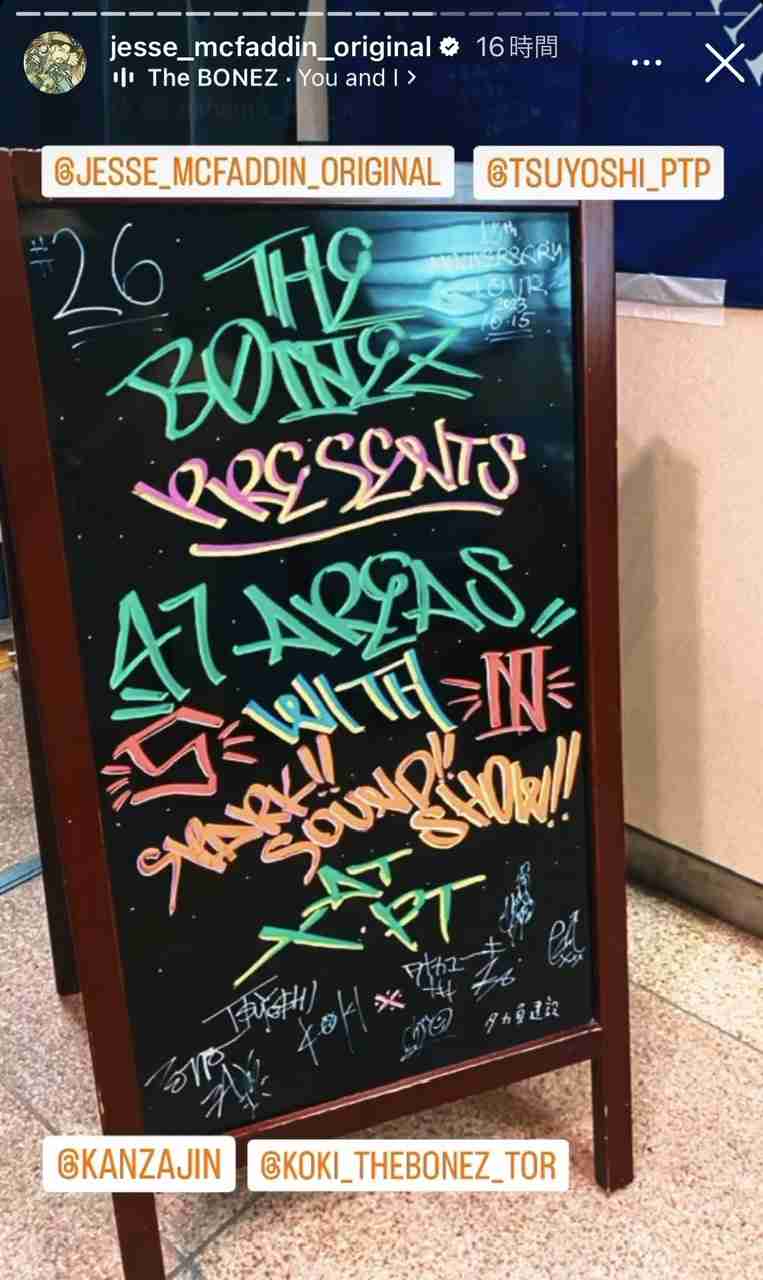 jesse_mcfaddin_original 16時間
The BONEZ · You and I >
@JESSE_MCFADDIN_ORIGINAL @TSUYOSHI_PTP
#26
10th
ANNIVERSARY
TOUR
2023
10.15
THE
BONEZ
PRESENTS
47 AREAS
WITH
SHARK!!
SOUND!!
SHOW!!
AT
X-PT
TSUYOSHI
KOKI
@KANZAJIN @KOKI_THEBONEZ_TOR